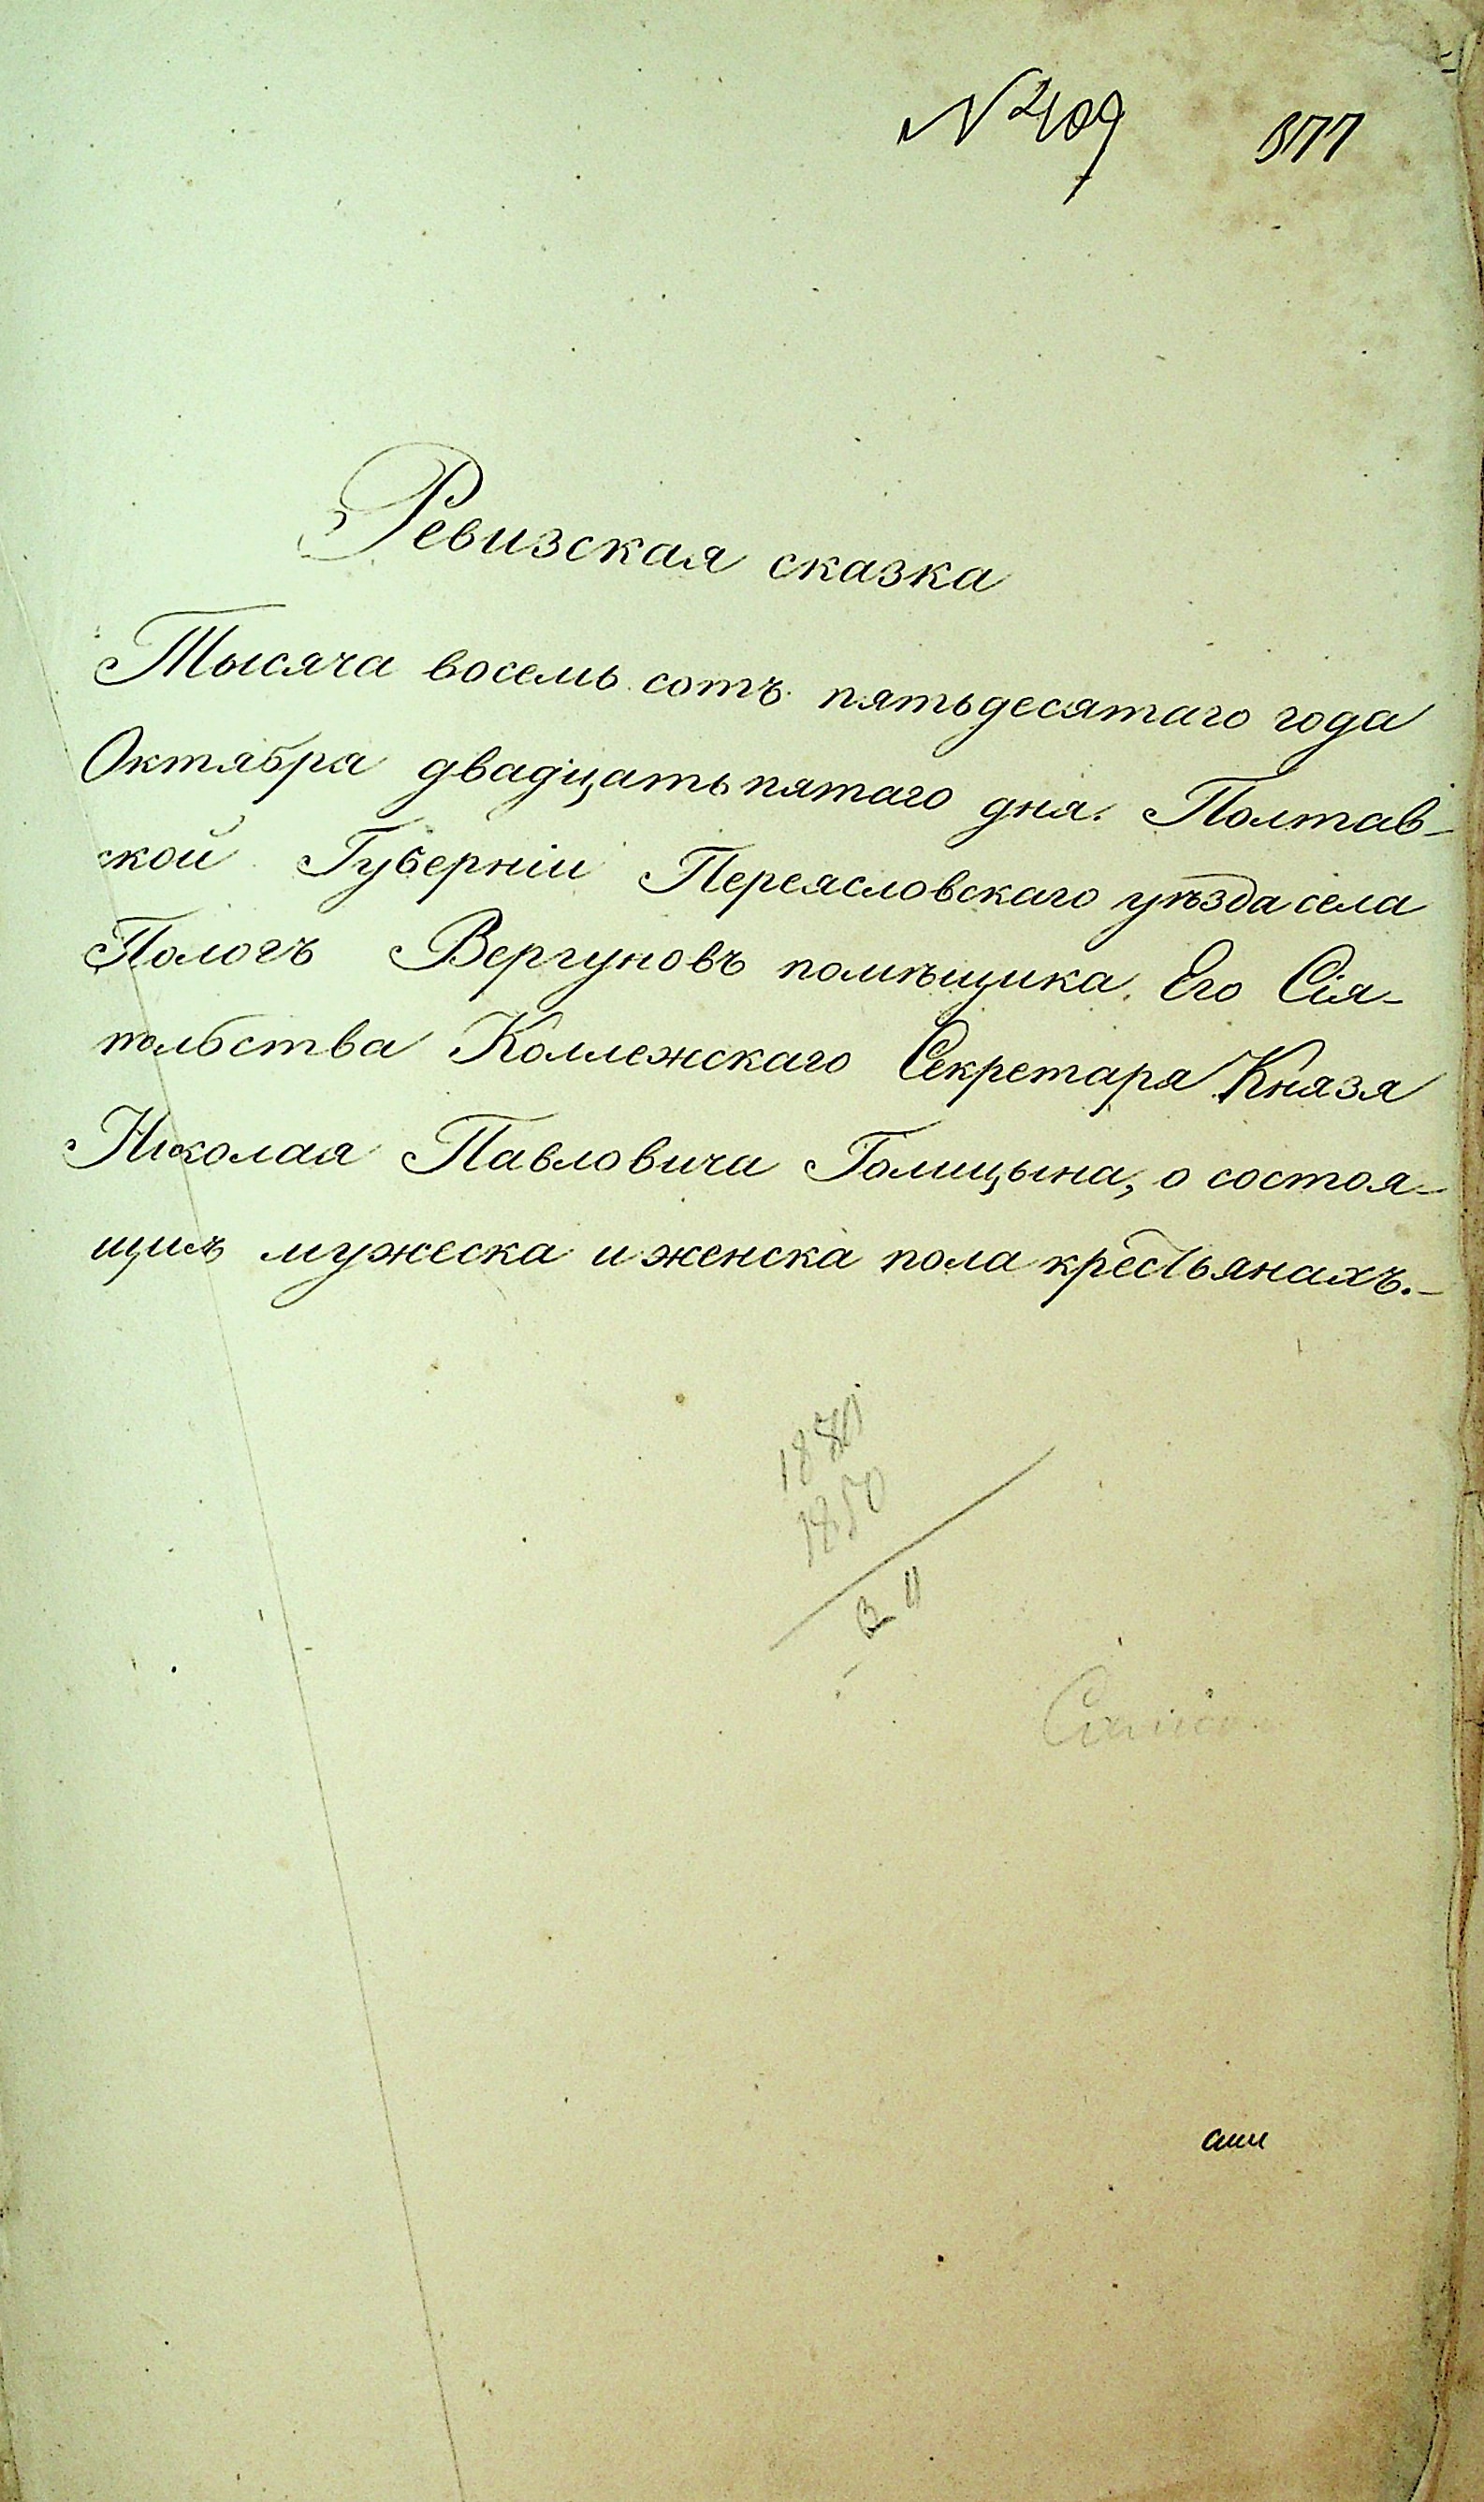 № 409 377
Ревизская сказка
Тысяча восемь сотъ пятьдесятаго года
Октября двадцать пятаго дня. Полтав-
ской Губерніи Переясловскаго уѣзда села
Пологъ Вергуновъ помѣщика Его Сія-
тельства Коллежскаго Секретаря Князя
Николая Павловича Голицына, о состоя-
щихъ мужеска и женска пола крестьянахъ.-
1850